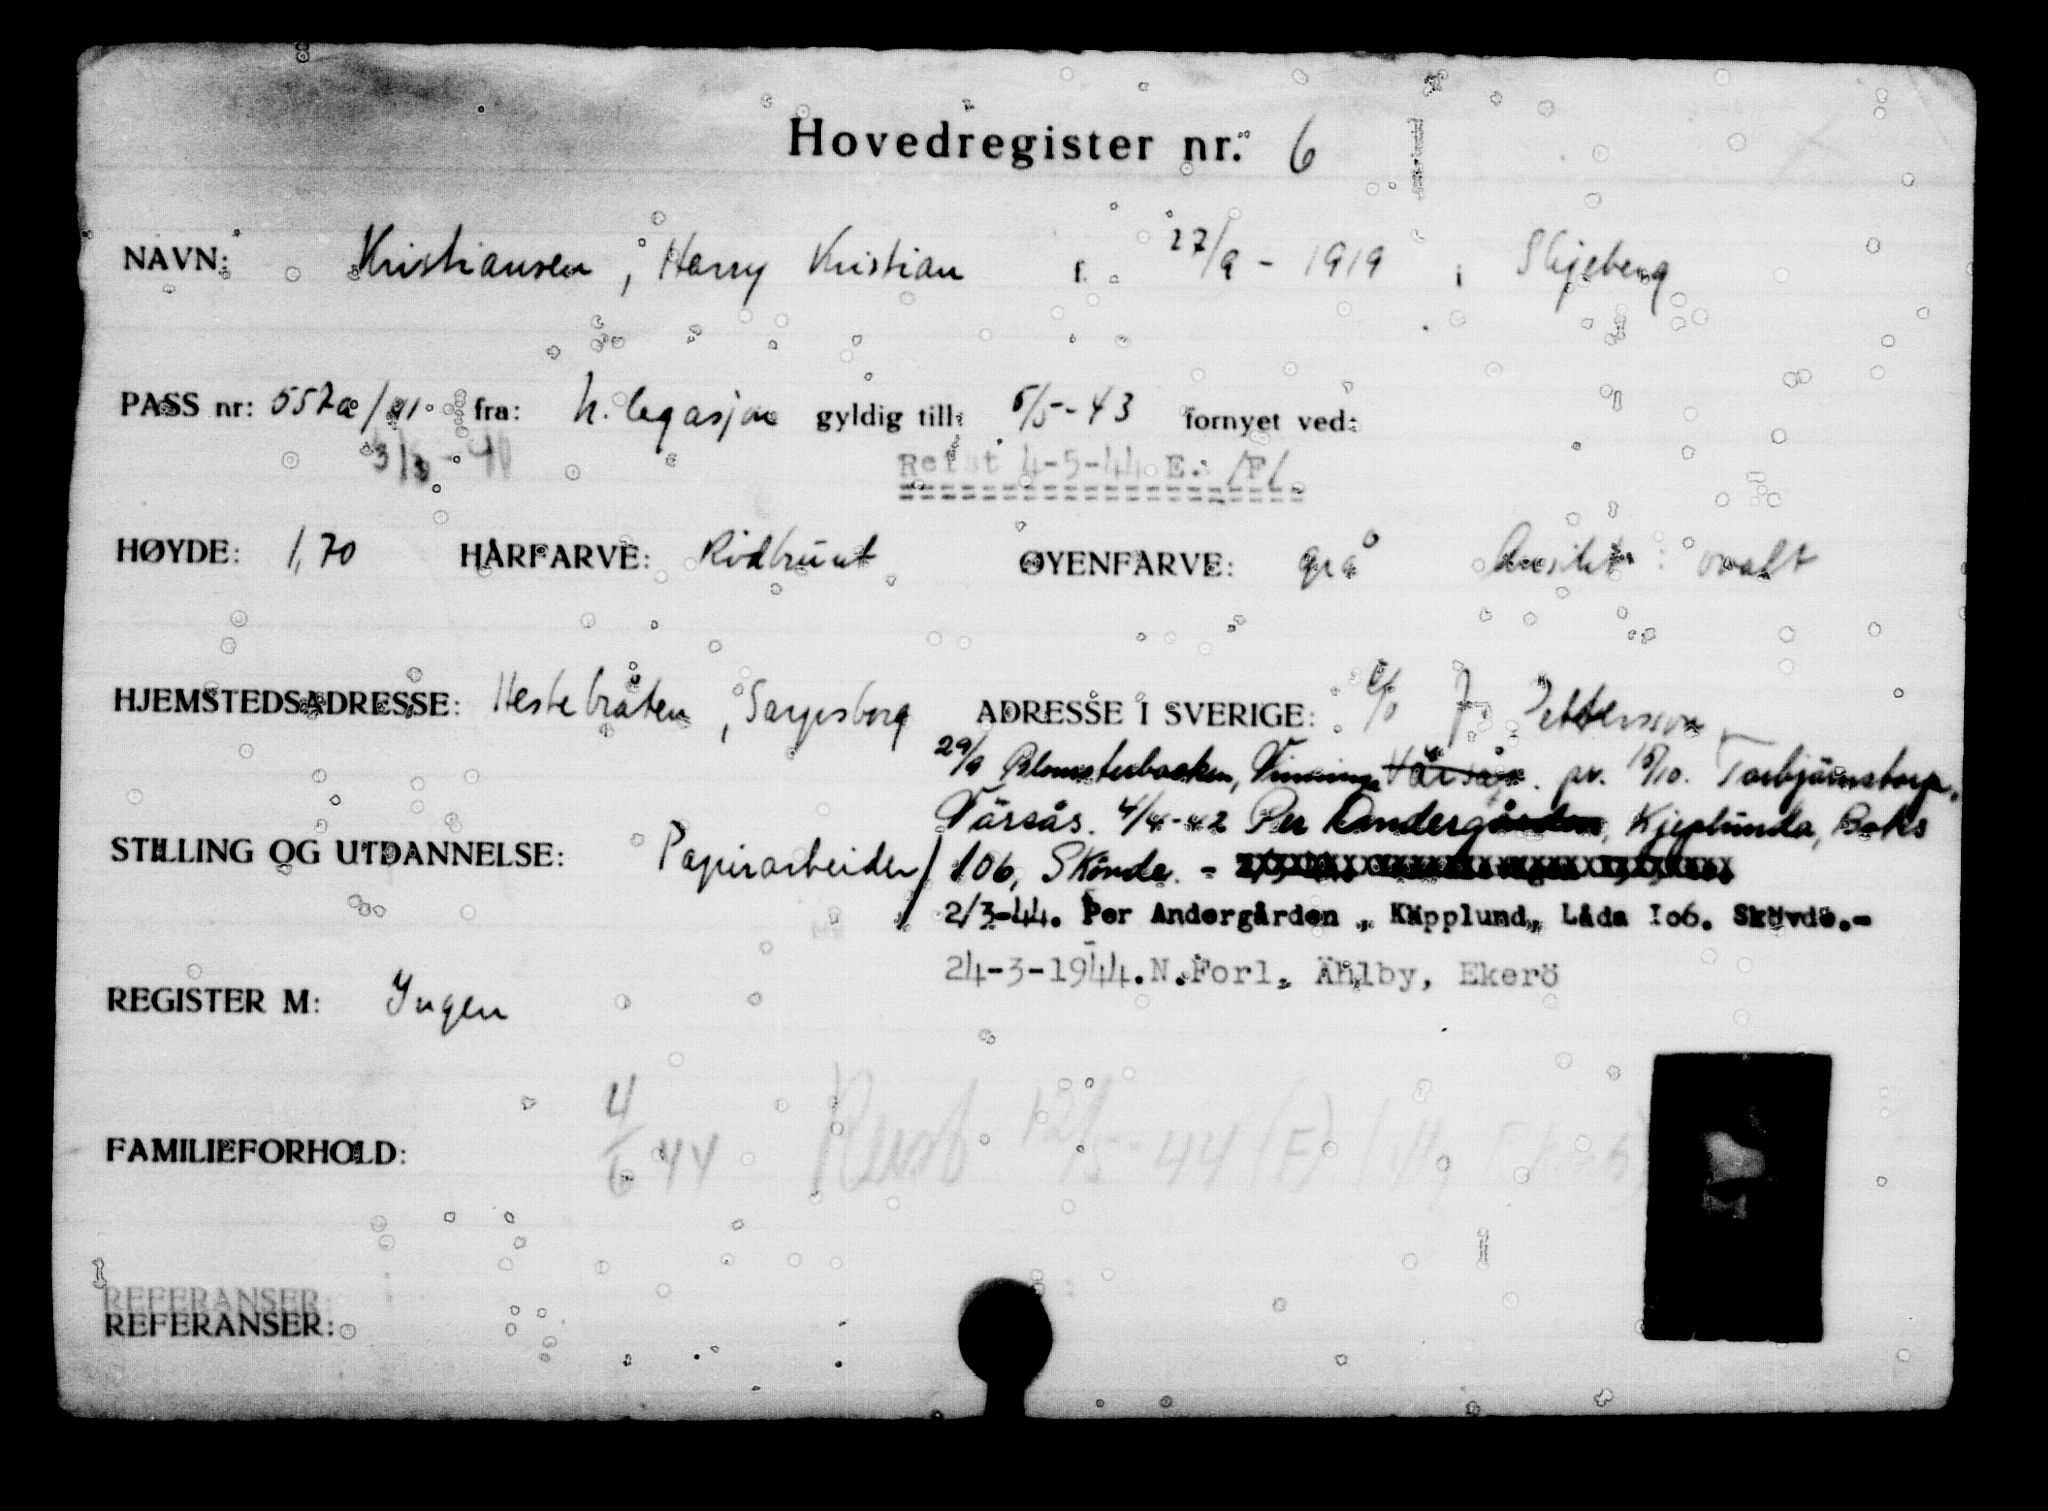 Hovedregister nr. 6
NAVN: Kristiansen, Harry Kristian f. 27/9 - 1919 i Skjeberg
PASS nr: fra: N. legasjon gyldig till: 5/5-43 fornyet ved:
Reist 4-5-44 E. /F/.
HØYDE: 1,70 HÅRFARVE: Rødbrunt ØYENFARVE: grå Ansikt: ovalt
HJEMSTEDSADRESSE: Hestebråten, Sarpsborg ADRESSE I SVERIGE: c/o J. Pettersson
29/9 Blomsterbacken, Vinninga Värsås. pr. 15/10. Torbjörnstorp,
Värsås. 4/4-42 Per Andergården, Kjeplunda, Boks
STILLING OG UTDANNELSE: Papirarbeider / 106, Skövde. -
2/3-44. Per Andergården, Käpplund, Låda 106. Skövde.-
24-3-1944. N.Forl. Åhlby, Ekerö
REGISTER M: Ingen
FAMILIEFORHOLD: 4/6 44 Reist 12/5-44 (F)
REFERANSER:
REFERANSER: